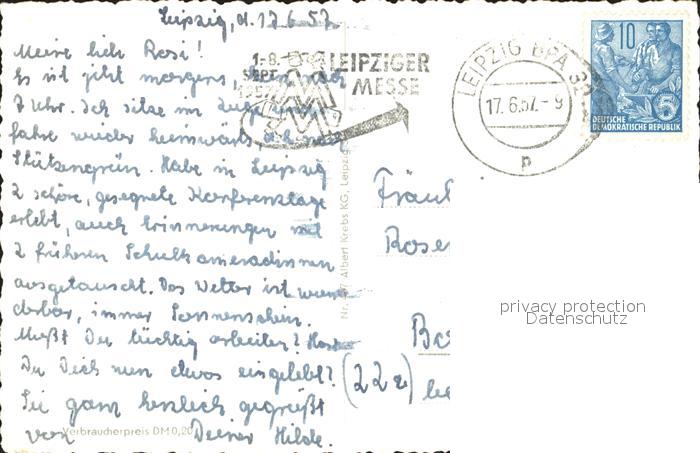 Leipzig, d. 17.6.57
Meine lieb Rosi!
Es ist jetzt morgens, kurz nach
7 Uhr. Ich sitze im Zuge und
fahre wieder heimwärts, d.h. nach
Stützengrün. Habe in Leipzig
2 schöne, gesegnete Konferenztage
erlebt, auch Erinnerungen mit
2 früheren Schulkameradinnen
ausgetauscht. Das Wetter ist wun-
derbar, immer Sonnenschein.
Mußt Du tüchtig arbeiten? Hast
Du Dich nun etwas eingelebt?
Sei ganz herzlich gegrüßt
von Deiner Hilde.
Verbraucherpreis DM 0,20
Albert Krebs KG, Leipzig
1.-8.
SEPT.
1957
LEIPZIGER
MESSE
MM
LEIPZIG BPA 32
17.6.57.-9
p
10
5
DEUTSCHE
DEMOKRATISCHE REPUBLIK
Fräul
Rosem
(22a)
privacy protection
Datenschutz